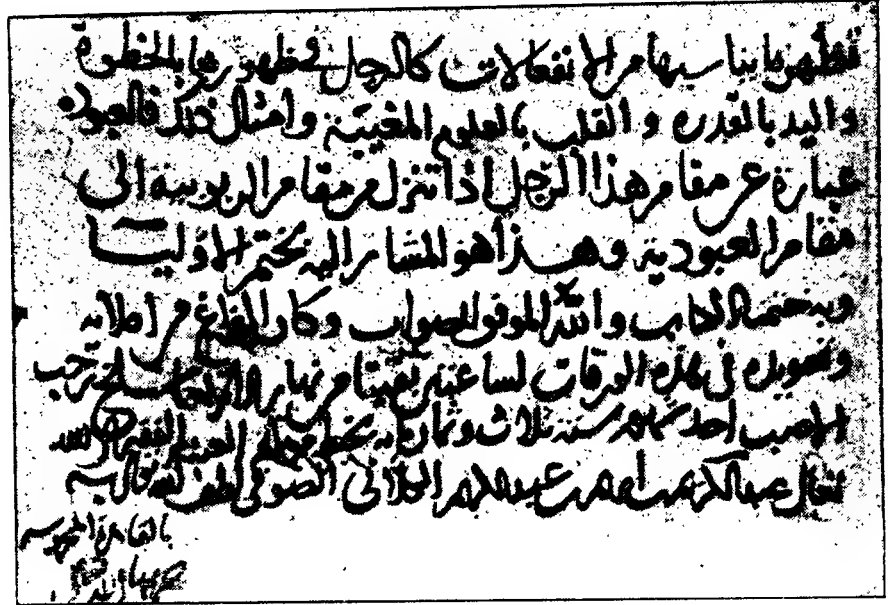 فتظهر بما يناسبها من الانفعالات كالرجل فظهورها بالخطوة
واليد بالقدره والقلب بالعلوم المغيبة وأمثال ذلك فالعبودة
عبارة عن مقام هذا الرجل اذا تنزل من مقام الربوبية الى
مقام العبودية وهذا هو المشار اليه بختم الاوليا
وبه ختمنا الكتاب والله الموفق للصواب وكان الفراغ من املائه
في هذه الورقات لساعتين بقيتا من نهار سلخ رجب
الاصب احد شهور سنة ثلاث وثمانمائة بخط الفقير الى الله
تعالى عبدالكريم بن ابراهيم بن عبدالكريم الصوفي لطف الله به
بالقاهرة المحروسة